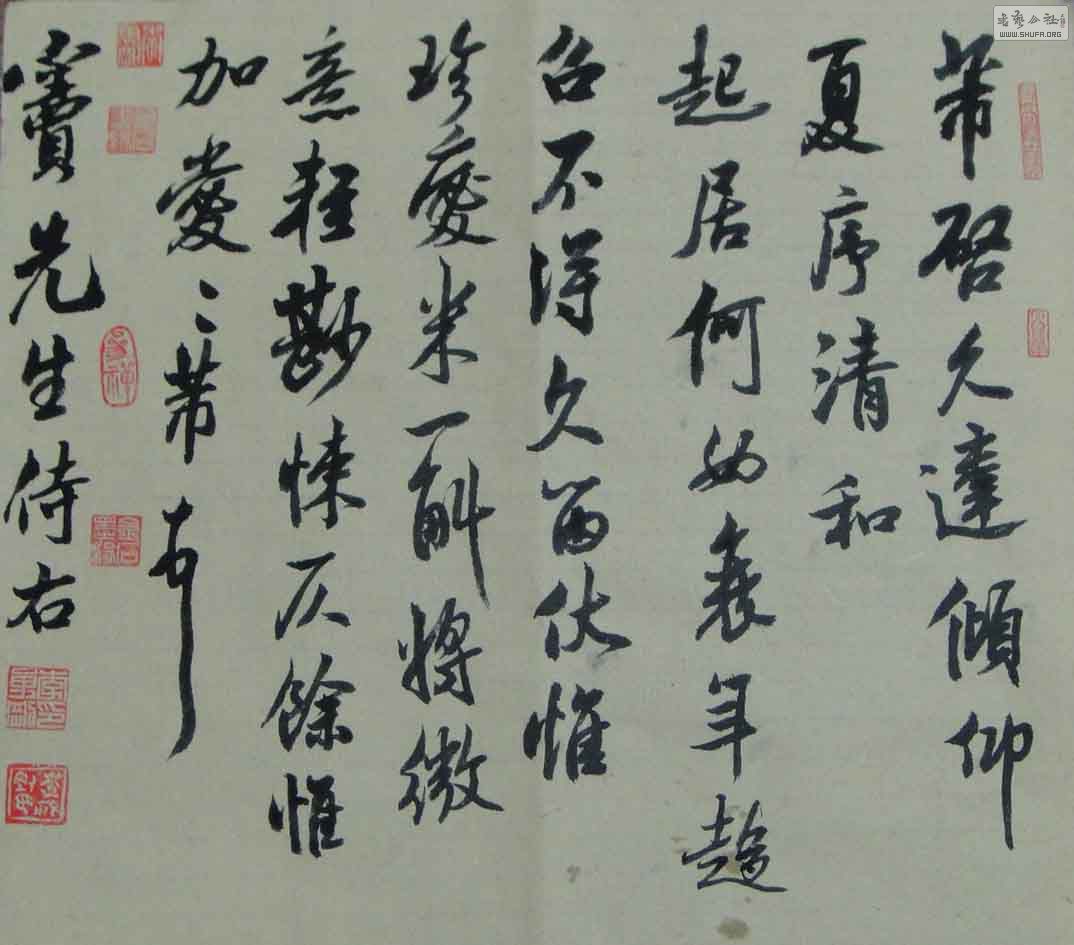 芾啓久違傾仰
夏序清和
起居何如衰年趍
召不得久留伏惟
珍愛米一斛將微
意輕尠悚仄餘惟
加愛〻芾頓首
竇先生侍右
書藝公社
WWW.SHUFA.ORG